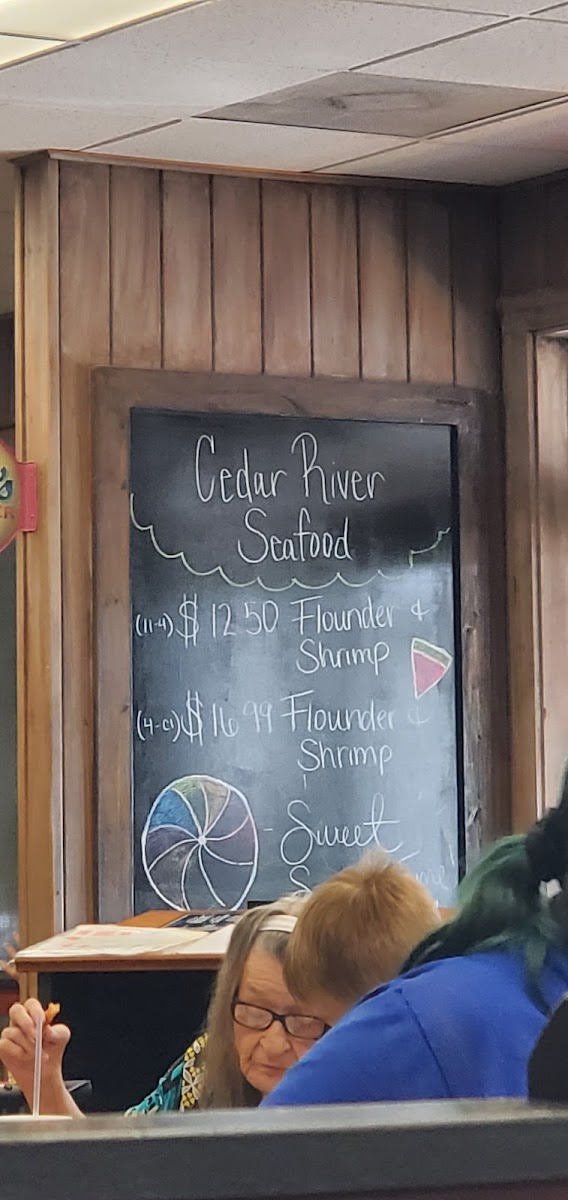 Cedar River
Seafood
(11-4) $ 12 50 Flounder &
Shrimp
(4-cl) $ 16 99 Flounder &
Shrimp
- Sweet